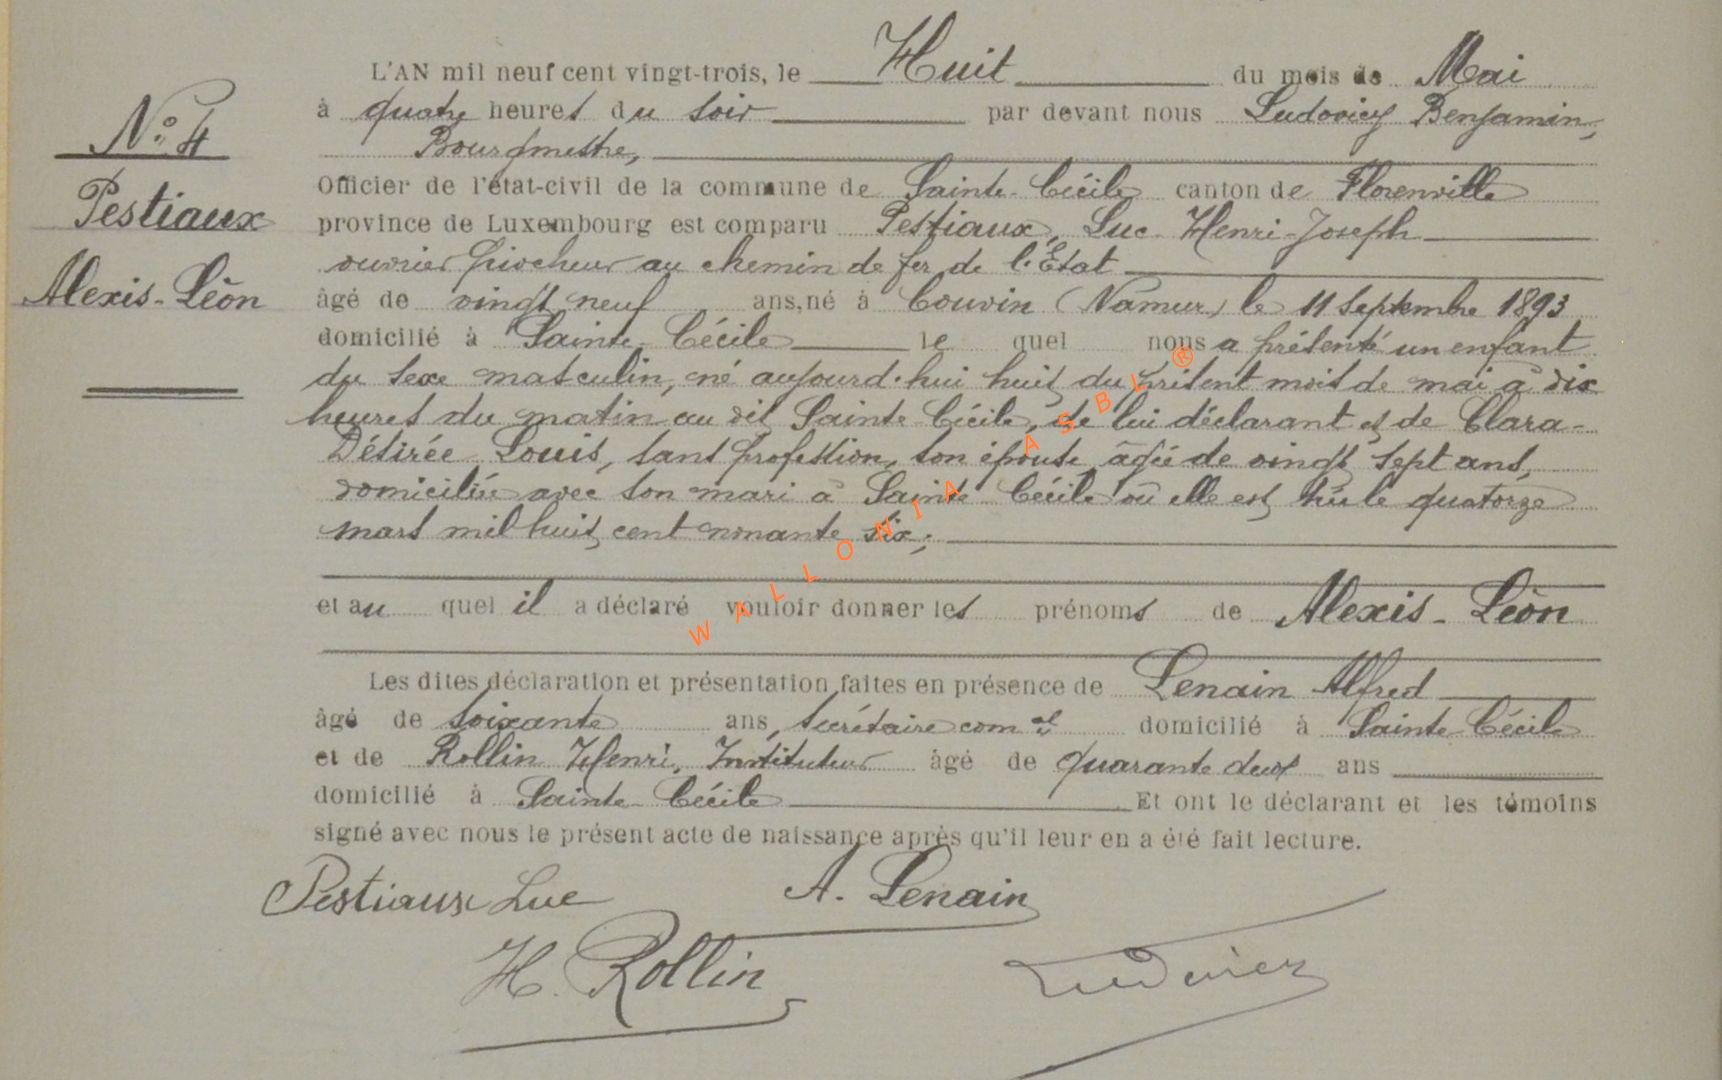 N° 4
Pestiaux
Alexis-Léon
L'AN mil neuf cent vingt-trois, le Huit du mois de Mai
à quatre heures du soir par devant nous Ludovicy Benjamin,
Bourgmestre,
Officier de l'état-civil de la commune de Sainte-Cécile canton de Florenville
province de Luxembourg est comparu Pestiaux, Luc-Henri-Joseph
ouvrier piocheur au chemin de fer de l'État
âgé de vingt neuf ans, né à Couvin (Namur) le 11 Septembre 1893
domicilié à Sainte Cécile le quel nous a présenté un enfant
du sexe masculin, né aujourd'hui huit du présent mois de mai à dix
heures du matin au dit Sainte-Cécile, de lui déclarant et de Clara-
Désirée Louis, sans profession, son épouse âgée de vingt sept ans,
domiciliée avec son mari à Sainte Cécile où elle est née le quatorze
mars mil huit cent nonante six;
et au quel il a déclaré vouloir donner les prénoms de Alexis-Léon
Les dites déclaration et présentation faites en présence de Lenain Alfred
âgé de soixante ans, secrétaire comal domicilié à Sainte Cécile
et de Rollin Henri, Instituteur âgé de quarante deux ans
domicilié à Sainte-Cécile Et ont le déclarant et les témoins
signé avec nous le présent acte de naissance après qu'il leur en a été fait lecture.
Pestiaux Luc A. Lenain
H. Rollin Ludovicy
WALLONIA ASBL ®